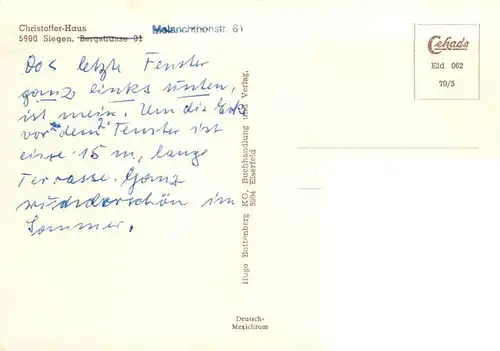 Christoffer-Haus
5900 Siegen, Bergstrasse 91 Melanchthonstr. 61
Das letzte Fenster
ganz links unten,
ist mein. Um die Ecke
vor dem Fenster ist
eine 15 m, lange
Terrasse. Ganz
wunderschön im
Sommer.
Hugo Bottenberg KG, Buchhandlung und Verlag,
5904 Eiserfeld
Deutsch-
Mexichrom
Cekade
Eld 062
70/5